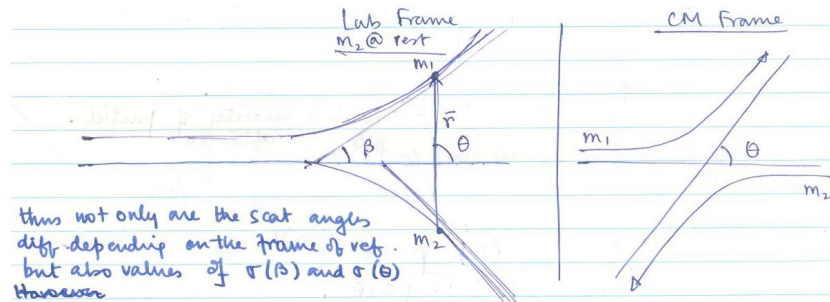 Lab Frame
m₂ @ rest
m₁
r̄
β
θ
m₂
CM Frame
m₁
θ
m₂
thus not only are the scat angles
diff. depending on the frame of ref.
but also values of σ(β) and σ(θ)